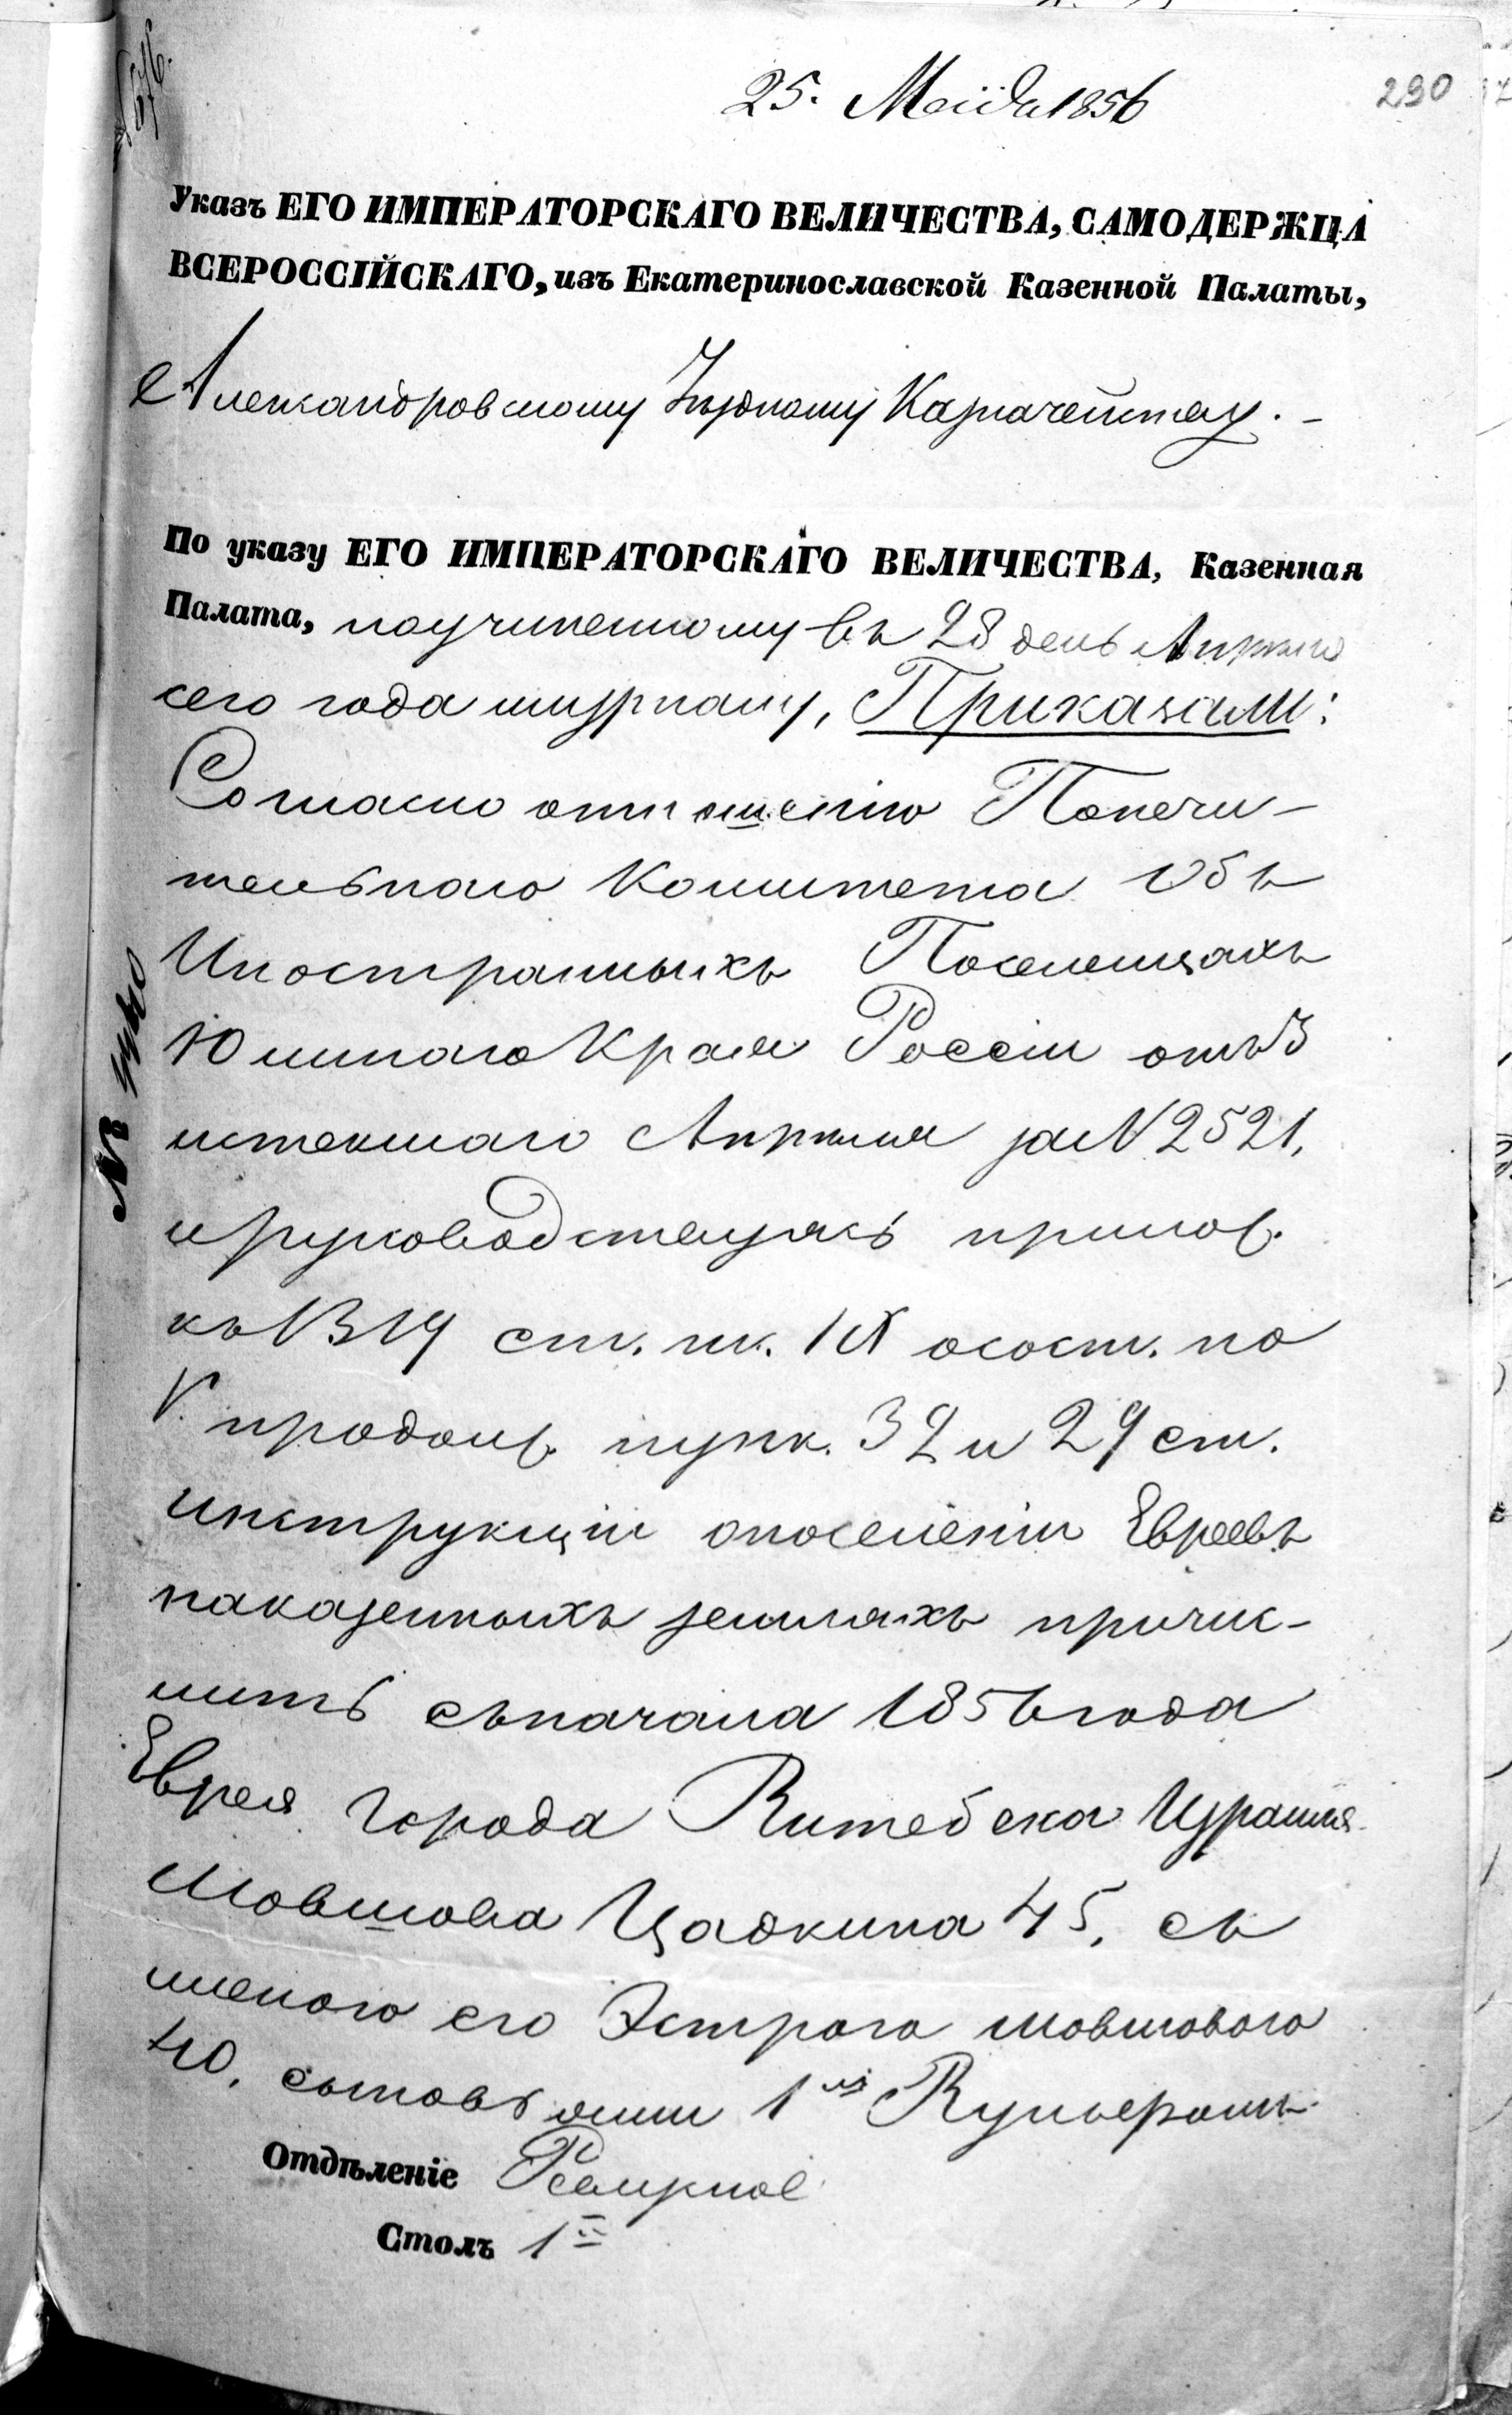 25. Маія 1856
290
Указъ ЕГО ИМПЕРАТОРСКАГО ВЕЛИЧЕСТВА, САМОДЕРЖЦА
ВСЕРОССІЙСКАГО, изъ Екатеринославской Казенной Палаты,
Александровскому Уѣздному Казначейству. –
По указу ЕГО ИМПЕРАТОРСКАГО ВЕЛИЧЕСТВА, Казенная
Палата, по учиненному въ 28 день Апрѣля
сего года журналу, Приказали:
Согласно отношенію Попечи-
тельнаго Комитета Объ
Иностранныхъ Поселенцахъ
Южнаго Края Россіи отъ 3
истекшаго Апрѣля за N 2521,
и руководствуясь прилож.
къ 1319 ст. т. IX о сост. по
V. продолж. пунк. 32 и 29 ст.
инструкціи о поселеніи Евреевъ
на казенныхъ земляхъ причис-
лить съ начала 1856 года
Еврея города Витебска Израиля
Мовшова Цадкина 45, съ
женою его Эстрою Мовшовою
40, сыновьями 1й
Отдѣленіе Ревизкое
Столъ 1й
№